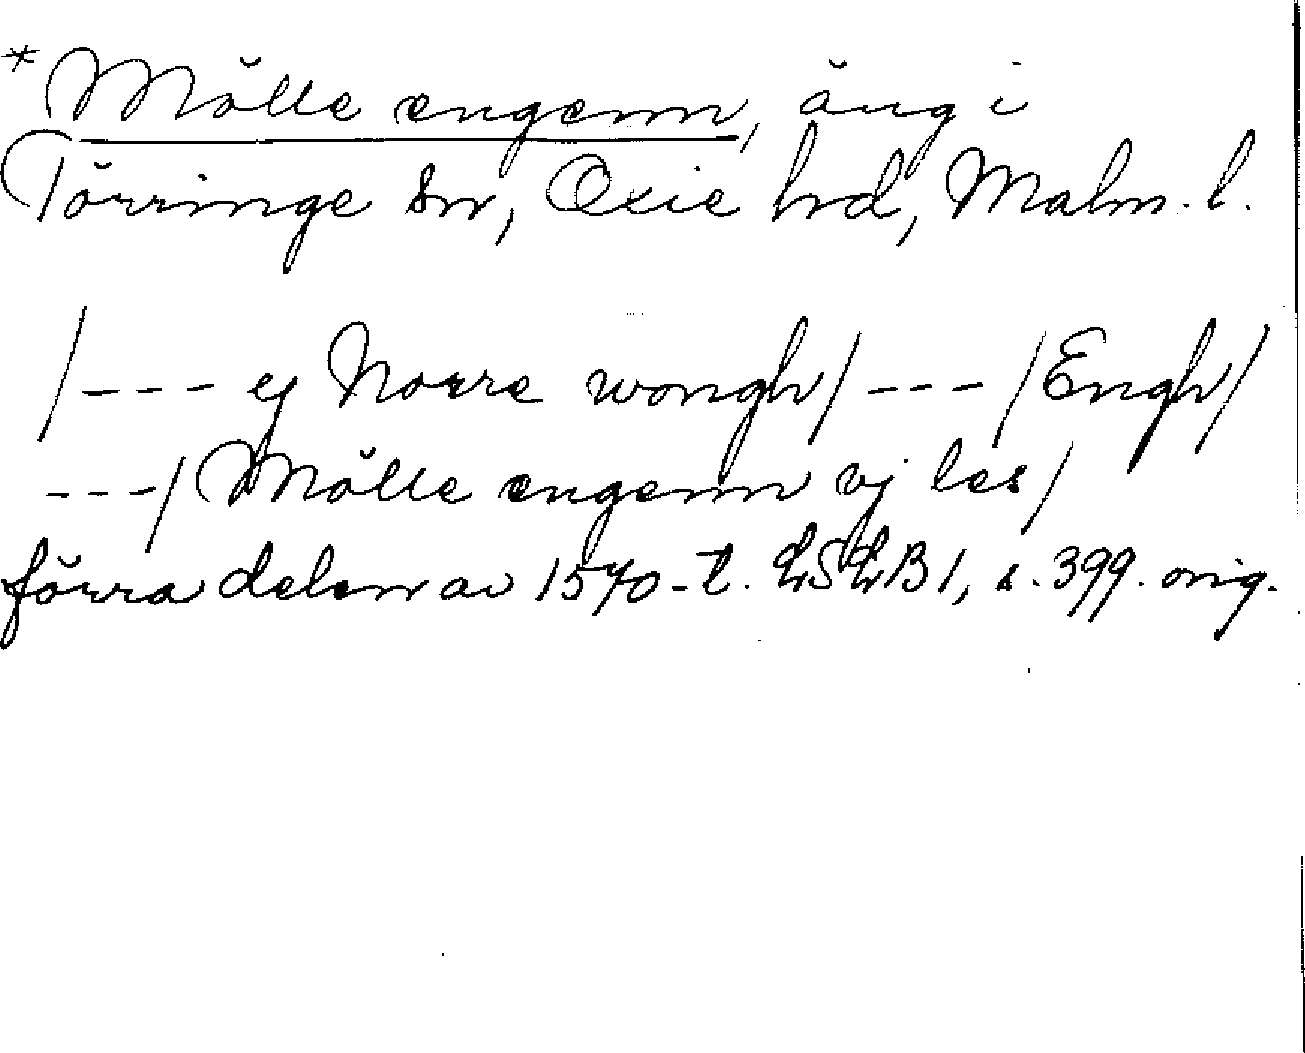 *Mölle engenn, äng i
Törringe sn, Oxie hrd, Malm. l.
/--- ej Norre wongh/ --- /Engh/
---/ Mölle engenn vj les/
förra delen av 1570-t. LSLB 1, s. 399. orig.